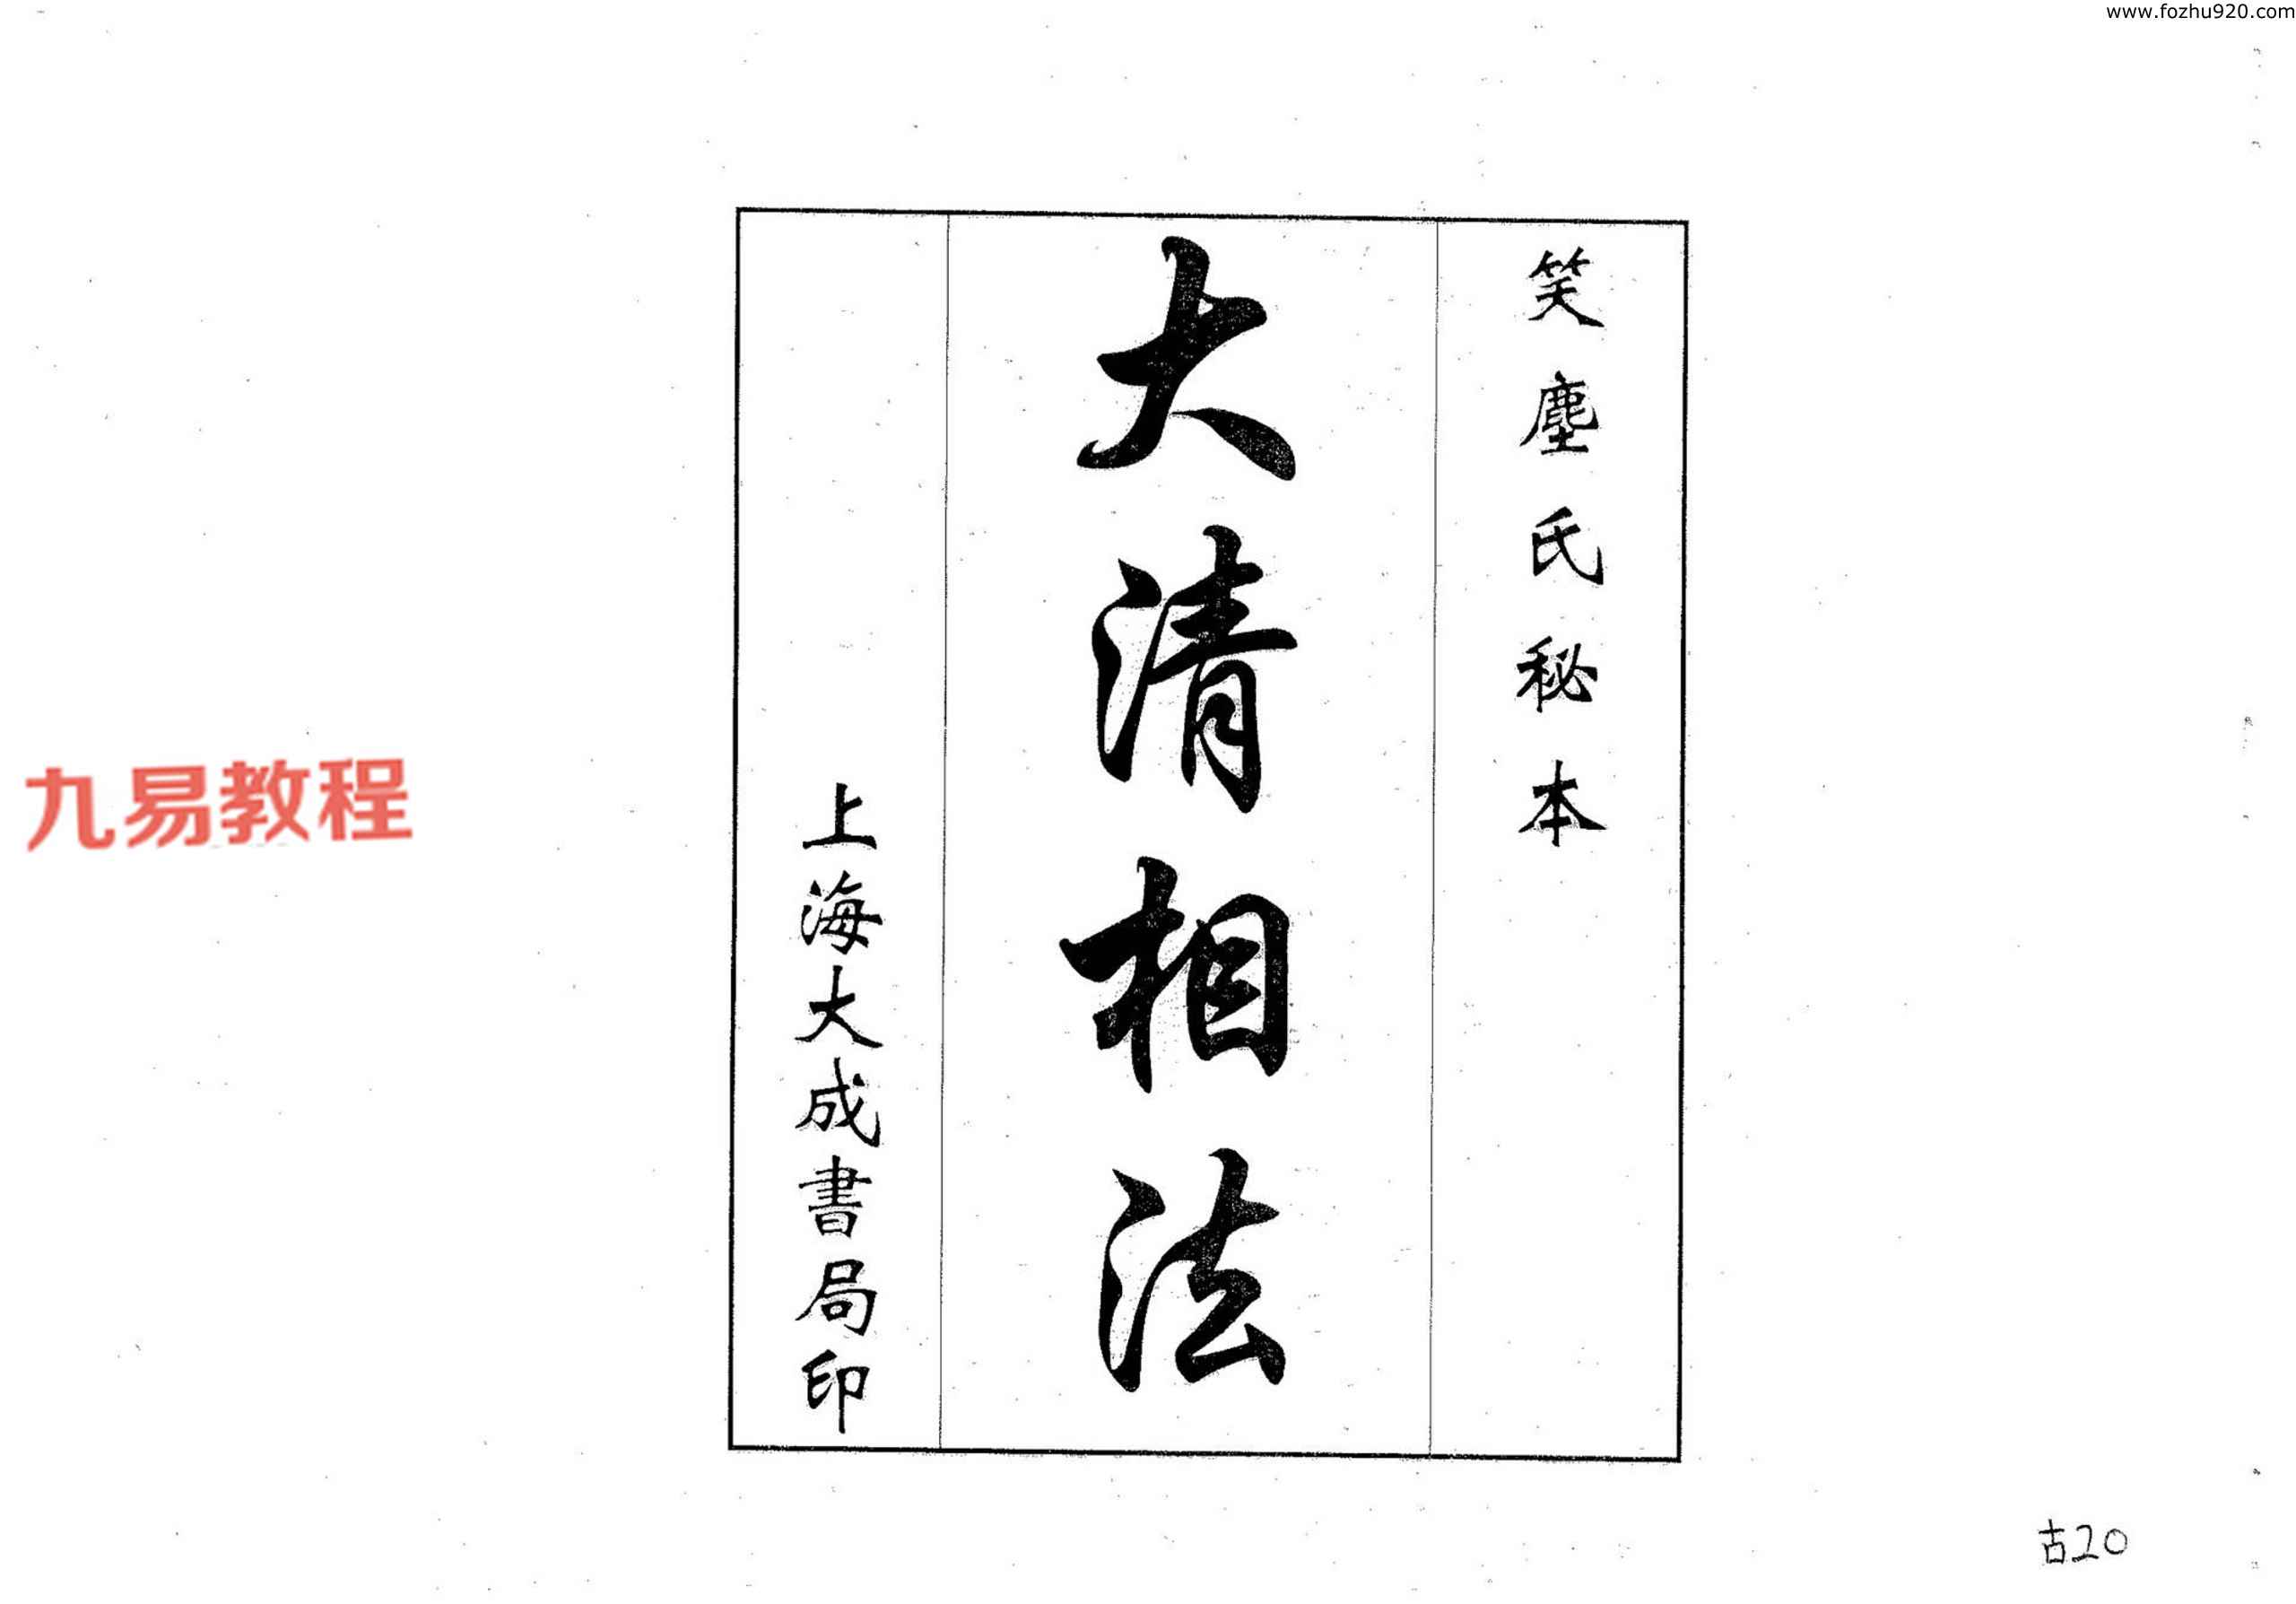 www.fozhu920.com
笑塵氏秘本
大清相法
上海大成書局印
九易教程
古20